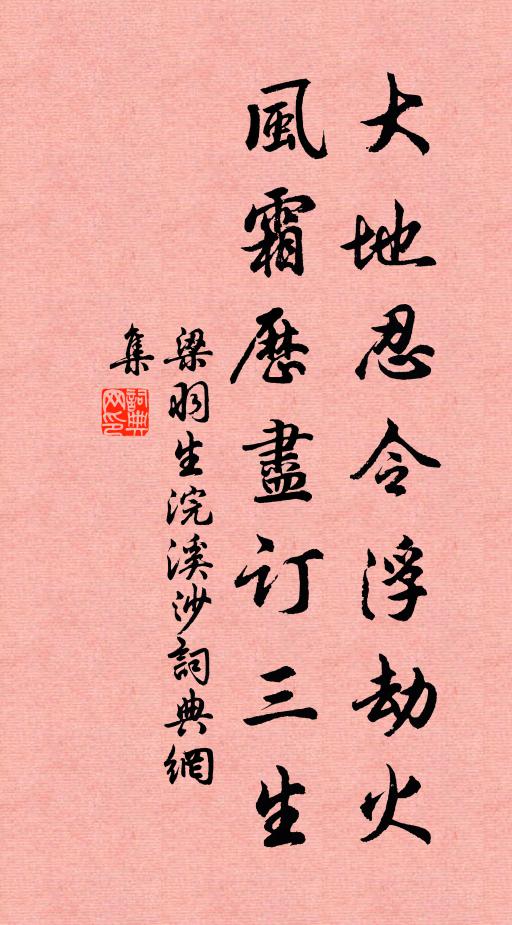 大地忍令浮劫火
風霜歷盡訂三生
梁羽生浣溪沙詞典網
集
詞典網印